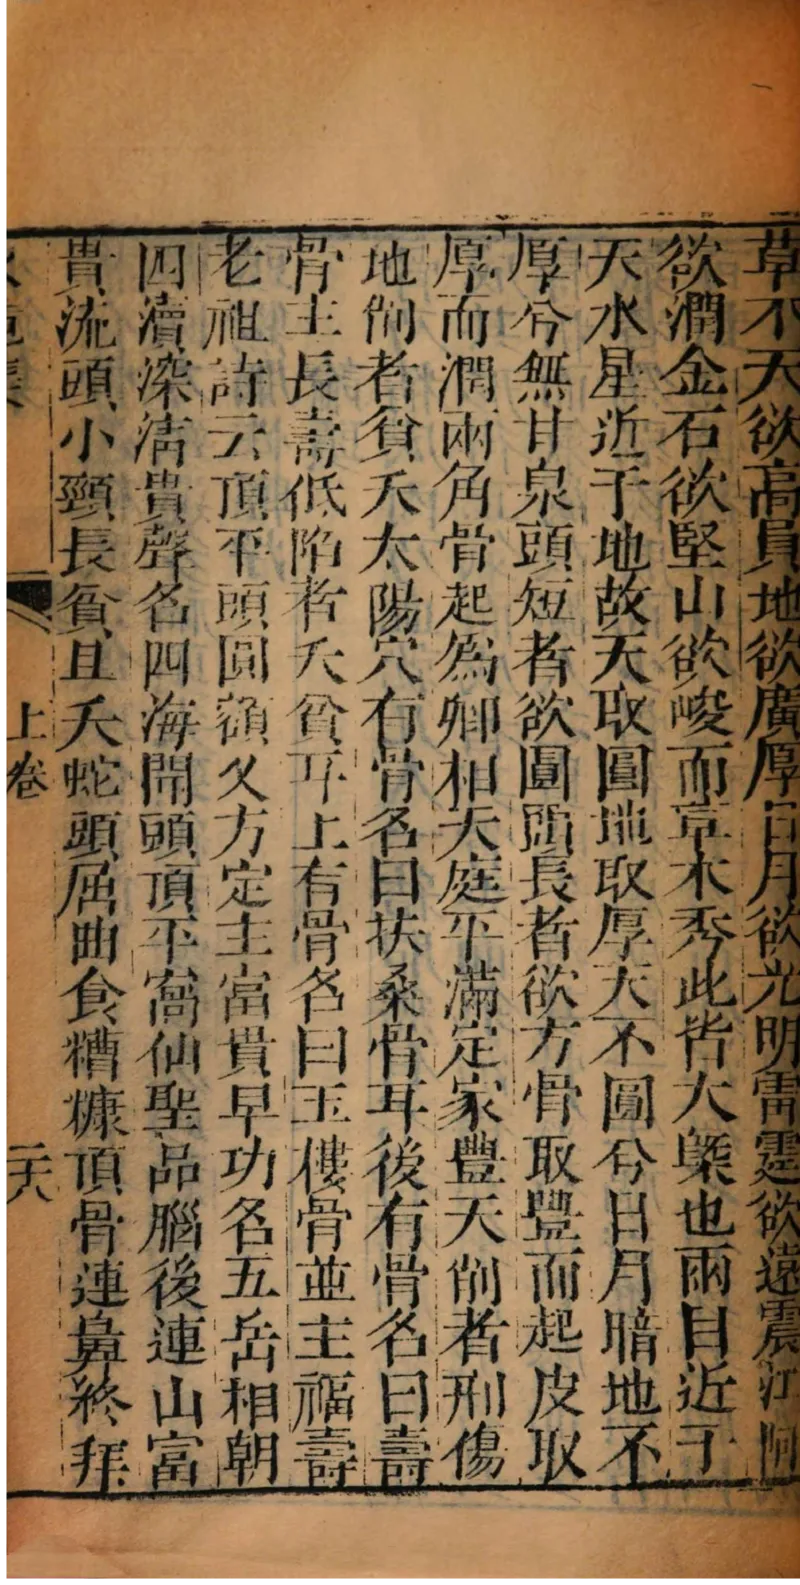 草木天欲高員地欲廣厚日月欲光明雷霆欲遠震江河
欲潤金石欲堅山欲峻而草木秀此皆大槩也兩目近于
天水星近于地故天取圓地取厚天不圓兮日月暗地不
厚兮無甘泉頭短者欲圓頭長者欲方骨取豐而起皮取
厚而潤兩角骨起為卿相天庭平滿定家豐天削者刑傷
地削者貧夭太陽穴有骨名曰扶桑骨耳後有骨名曰壽
骨主長壽低陷者夭貧耳上有骨名曰玉樓骨並主福壽
老祖詩云頂平頭圓額又方定主富貴早功名五岳相朝
四瀆深清貴聲名四海開頭頂平窩仙聖品腦後連山富
貴流頭小頸長貧且夭蛇頭屈曲食糟糠頂骨連鼻終拜
上卷
二十八